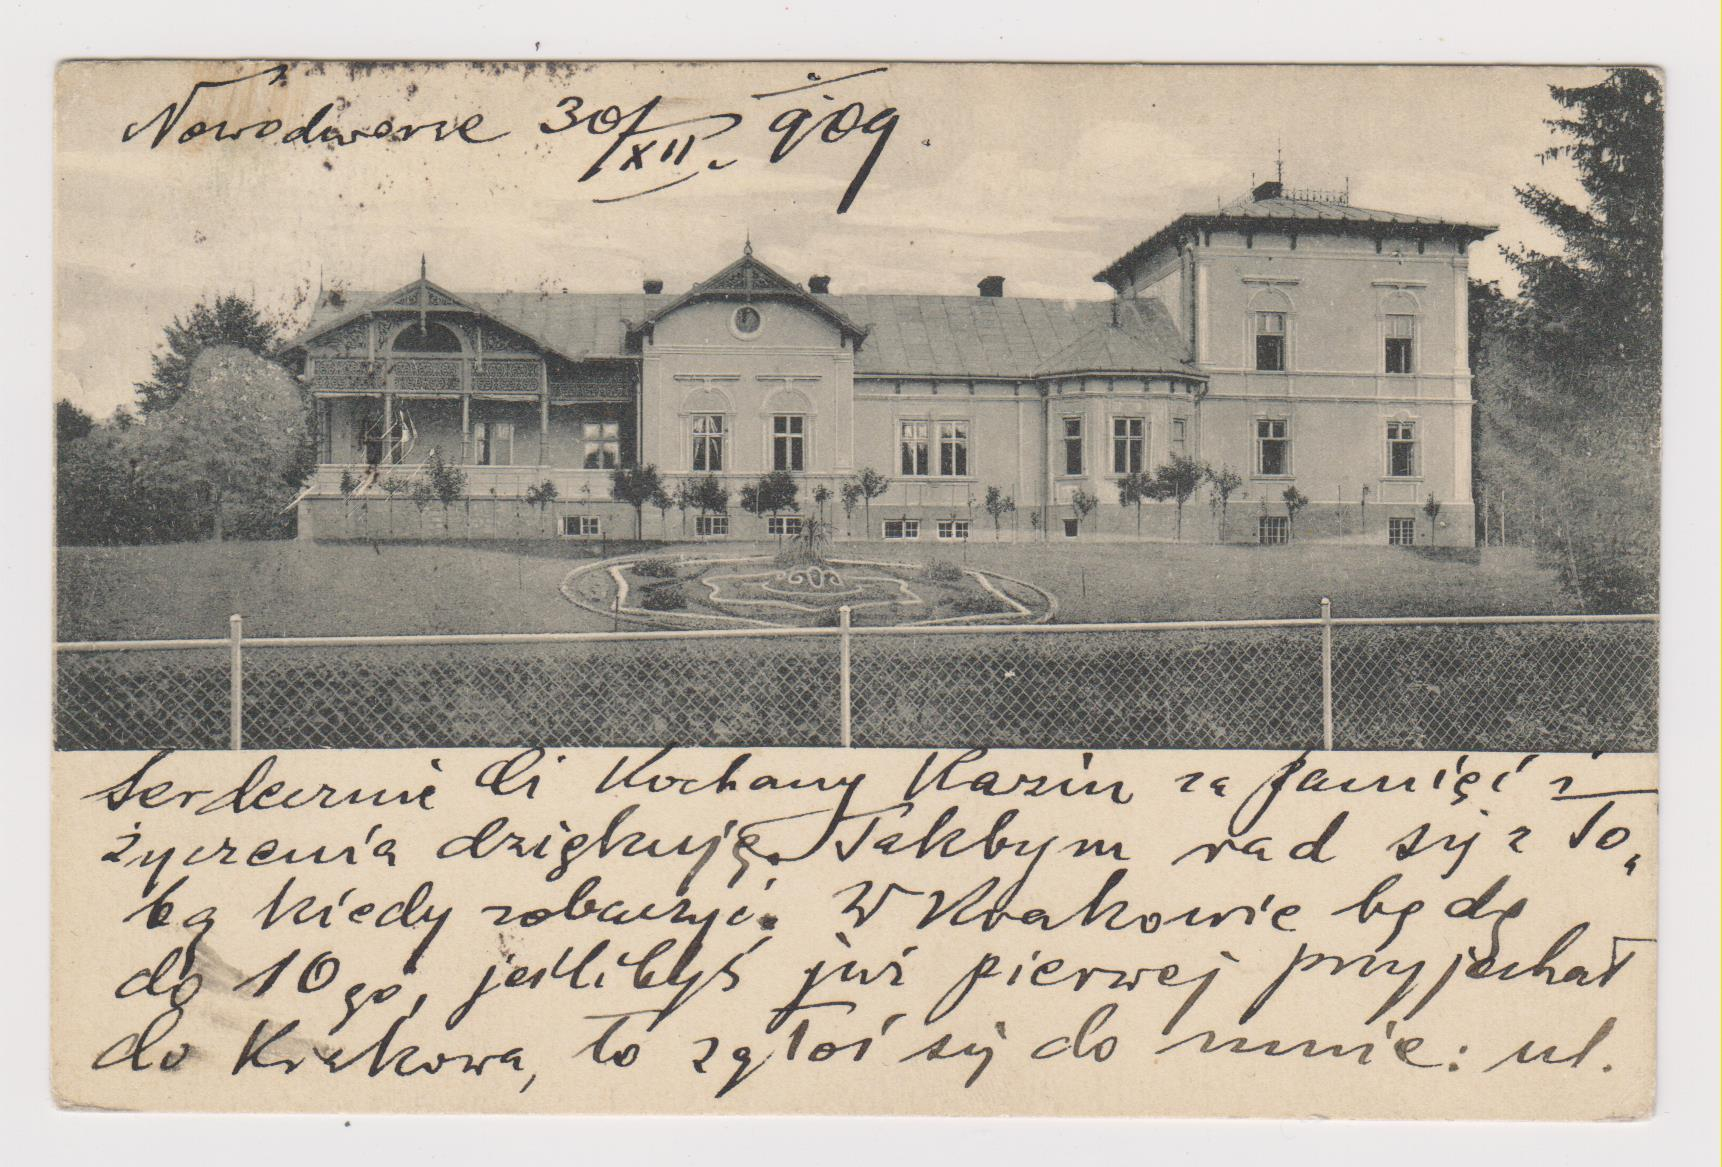 Nowodworze 30/XII. 909.
Serdecznie Ci Kochany Kaziu za pamięć i
życzenia dziękuję. Takbym rad się z To„
bą kiedy zobaczyć. W Krakowie będę
do 10go, jeślibyś już pierwej przyjechał
do Krakowa, to zgłoś się do mnie: ul.